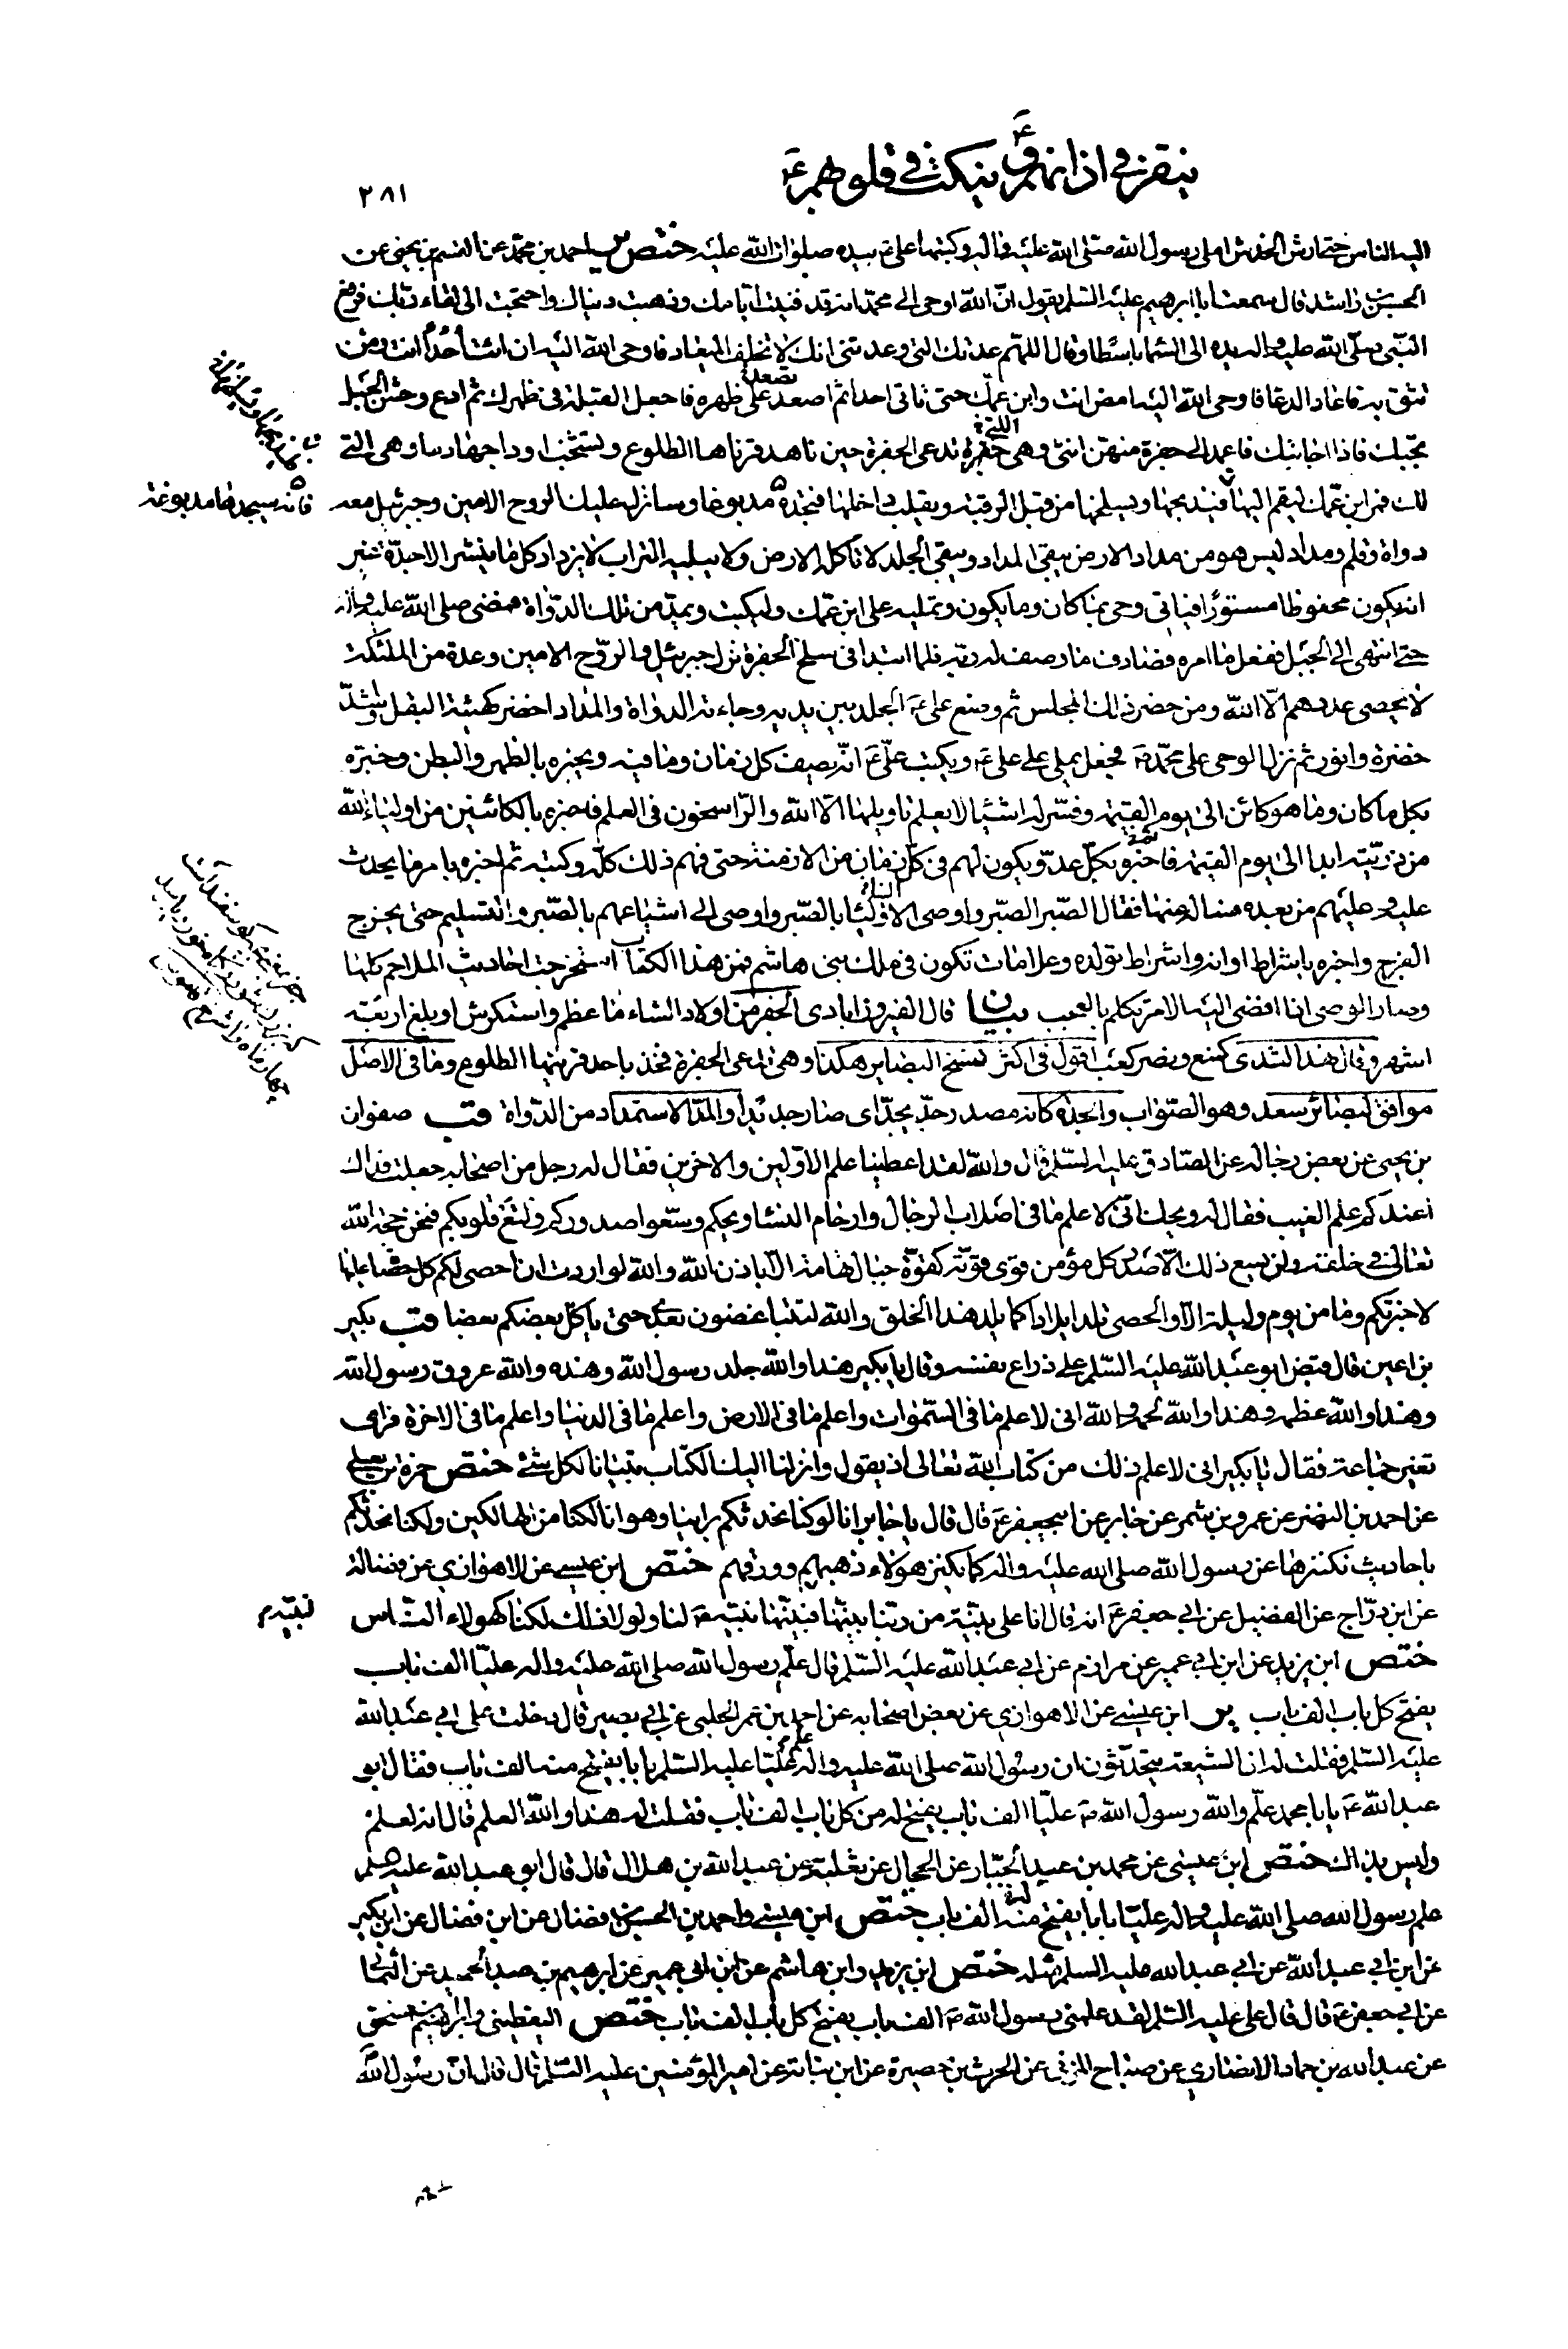 ينقر في اذانهم و ينكث في قلوبهم ع
٢٨١
اليه الناس حتى ارش الخدش املى رسول الله صلى الله عليه واله وكتبها علي ع بيده صلوات الله عليه ختص ير احمد بن محمد عن القسم بن يحيى عن
الحسن بن راشد قال سمعت ابا ابرهيم عليه السلم يقول ان الله اوحى الى محمد انه قد فنيت ايامك وذهبت دنياك واحتجت الى لقاء ربك فرفع
النبي صلى الله عليه واله يده الى السماء باسطا وقال اللهم عدتك التي وعدتني انك لا تخلف الميعاد فاوحى الله اليه ان ائت أحُداً انت ومن
تثق به فاعاد الدعا فاوحى الله اليه امض انت وابن عمك حتى تاتي احدا ثم اصعد على ظهره فاجعل القبلة في ظهرك ثم ادع وحش الجبل
تجبك فاذا اجابتك فاعمد الى جفرة منهن انثى وهي جفرة تدعى الجفرة حين ناهد قرناها الطلوع وتشخب اوداجها دما وهي التي
لك فمر ابن عمك ليقم اليها فيذبحها ويسلخها من قبل الرقبة ويقلب داخلها فتجده مدبوغا وسانزل عليك الروح الامين وجبرئيل معه
فانه سيجدها مدبوغة
دواة وقلم ومداد ليس هو من مداد الارض يبقى المداد ويبقى الجلد لا تاكله الارض ولا يبليه التراب لا يزداد كل ما ينشر الا جدة غير
انه يكون محفوظا مستورا فياتي وحي بما كان وما يكون وتمليه على ابن عمك وليكتب ويمد من تلك الدواة فمضى صلى الله عليه واله
حتى انتهى الى الجبل ففعل ما امره فصادف ما وصف له ربه فلما ابتدا في سلخ الجفرة نزل جبرئيل والروح الامين وعدة من الملئكة
لا يحصي عددهم الا الله ومن حضر ذلك المجلس ثم وضع علي ع الجلد بين يديه وجاءته الدواة والمداد اخضر كهيئة البقل واشد
خضرة وانور ثم نزل الوحي على محمد ص فجعل يملي على علي ع ويكتب علي ع انه يصف كل زمان وما فيه ويخبره بالظهر والبطن وخبره
بكل ما كان وما هو كائن الى يوم القيمة وفسر له اشياء لا يعلم تاويلها الا الله والراسخون في العلم فاخبره بالكائنين من اولياء الله
من ذريته ابدا الى يوم القيمة فاخبره بكل عدو يكون لهم في كل زمان من الازمنة حتى فهم ذلك كله وكتبه ثم اخبره بامر ما يحدث
عليه وعليهم من بعده فساله عنها فقال الصبر الصبر واوصى الاولياء بالصبر واوصى الى اشياعهم بالصبر والتسليم حتى يخرج
الفرج واخبره باشراط اوانه واشراط تولده وعلامات تكون في ملك بني هاشم فمن هذا الكتاب استخرجت احاديث الملاحم كلها
وصار الوصي اذا افضي اليه الامر تكلم بالعجب بيان قال الفيروزابادى الجفر من اولاد الشاء ما عظم واستكرش او بلغ اربعة
اشهر وقال هند الثدى كمنع ونصر كعب اقول في اكثر نسخ البصاير هكذا وهي تدعى الجفرة تجذ باحد قرنيها الطلوع وما في الاصل
موافق لبصائر سعد وهو الصواب والجدة كانه مصدر جد يجد اى صار جديدا والمد الاستمداد من الدواة قب صفوان
بن يحيى عن بعض رجاله عن الصادق عليه السلم قال والله لقد اعطينا علم الاولين والاخرين فقال له رجل من اصحابه جعلت فداك
اعندكم علم الغيب فقال له ويحك انى لاعلم ما في اصلاب الرجال وارحام النساء ويحكم وسعوا صدوركم ولتع قلوبكم فنحن حجة الله
تعالى في خلقه ولن يسع ذلك الا صدر كل مؤمن قوى قوته كقوة جبال تهامة الا باذن الله والله لو اردت ان احصى لكم كل حصاة عليها
لاخبرتكم وما من يوم وليلة الا والحصى تلد ايلادا كما يلد هذا الخلق والله لتتباغضون بعدى حتى ياكل بعضكم بعضا قب بكير
بن اعين قال قبض ابو عبد الله عليه السلم على ذراع نفسه وقال يا بكير هذا والله جلد رسول الله وهذه والله عروق رسول الله
وهذا والله عظمه وهذا والله لحمه والله انى لاعلم ما في السموات واعلم ما في الارض واعلم ما في الدنيا واعلم ما في الاخرة فراى
تغير جماعة فقال يا بكير انى لاعلم ذلك من كتاب الله تعالى اذ يقول وانزلنا اليك الكتاب تبيانا لكل شئ ختص حمزة بن يعلى
عن احمد بن النضر عن عمرو بن شمر عن جابر عن ابيجعفر ع قال قال يا جابر انا لو كنا نحدثكم براينا وهوانا لكنا من الهالكين ولكنا نحدثكم
باحاديث نكنزها عن رسول الله صلى الله عليه واله كما يكنز هؤلاء ذهبهم وورقهم ختص ابن عيسى عن الاهوازي عن فضالة
عن ابن دراج عن الفضيل عن ابي جعفر ع انه قال انا على بينة من ربنا بينها لنبيه ص فبينها نبيه ص لنا ولولا ذلك لكنا كهؤلاء الناس
ختص ابن يزيد عن ابن ابي عمير عن مرازم عن ابي عبد الله عليه السلم قال علم رسول الله صلى الله عليه واله عليا الف باب
يفتح كل باب الف باب ير ابن عيسى عن الاهوازي عن بعض اصحابه عن احمد بن عمر الحلبي عن ابي بصير قال دخلت على ابي عبد الله
عليه السلم فقلت له ان الشيعة يتحدثون ان رسول الله صلى الله عليه واله علم عليا عليه السلم بابا يفتح منه الف باب فقال ابو
عبد الله ع يا با محمد علم والله رسول الله ص عليا الف باب يفتح له من كل باب الف باب فقلت له هذا والله العلم قال انه لعلم
وليس بذاك ختص ابن عيسى عن محمد بن عبد الجبار عن الحجال عن ثعلبة عن عبد الله بن هلال قال قال ابو عبد الله عليه السلم
علم رسول الله صلى الله عليه واله عليا بابا يفتح منه الف باب ختص ابن عيسى واحمد بن الحسن بن فضال عن ابن فضال عن ابن بكير
عن ابن ابي عبد الله عن ابي عبد الله عليه السلم مثله ختص ابن يزيد وابن هاشم عن ابن ابي عمير عن ابرهيم بن عبد الحميد عن الثمالي
عن ابي جعفر ع قال قال علي عليه السلم لقد علمني رسول الله ص الف باب يفتح كل باب الف باب ختص اليقطيني وابرهيم بن اسحق
عن عبد الله بن حماد الانصاري عن صباح المزني عن الحرث بن حصيرة عن ابن نباتة عن امير المؤمنين عليه السلم قال قال ان رسول الله